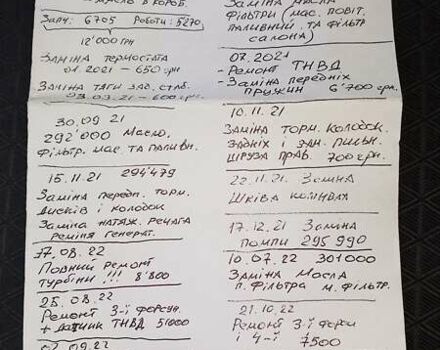 МАСЛО В КОРОБ.
Запч: 6705 Роботи: 5270
12'000 грн
Заміна термостата
01.2021 - 650 грн
Заміна тяги зад. стаб.
03.03.21 - 600 грн
30.09.21
292'000 Масло,
Фільтр. мас. та паливн.
15.11.21 294'479
Заміна передн. торм.
дисків і колодок
Заміна натяж. речага
ременя генерат.
17.08.22
Повний ремонт
турбіни !!! 8'800
25.08.22
Ремонт 3-ї форсун.
+ датчик ТНВД 51000
02.09.22
Заміна масла
Фільтри (мас. повіт.
паливний та фільтр
салона)
07.2021
- Ремонт ТНВД
- Заміна передніх
пружин 6'700 грн.
10.11.21
Заміна торм. колодок
задніх і зан. пильн.
шруза прав. 700 грн.
22.11.21. Заміна
Шківа колінвала
17.12.21 Заміна
помпи 295 990
10.07.22 301000
Заміна Масла
п. Фільтра м. Фільтр.
21.10.22
Ремонт 3-ї форсун
і 4-ї 7500